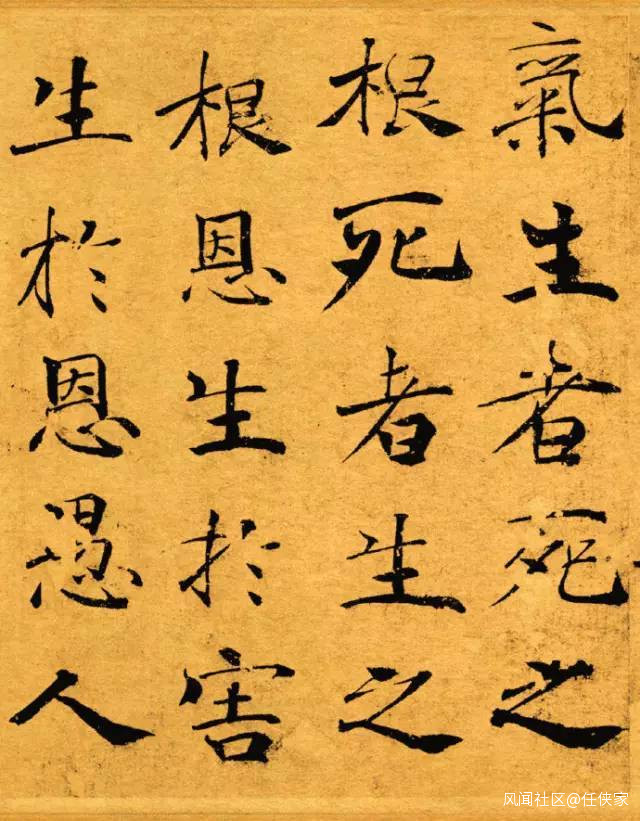 氣生者死之
根死者生之
根恩生於害
生於恩愚人
风闻社区@任侠家